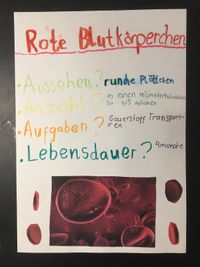 Rote Blutkörperchen
• Aussehen? runde Plättchen
• Anzahl? in einen
4/5 milionen
• Aufgaben? Sauerstoff Transport-
ieren
• Lebensdauer? 4 monate